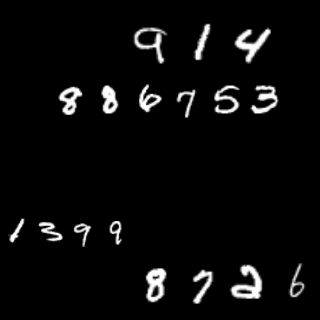 914
886753
1399
8726